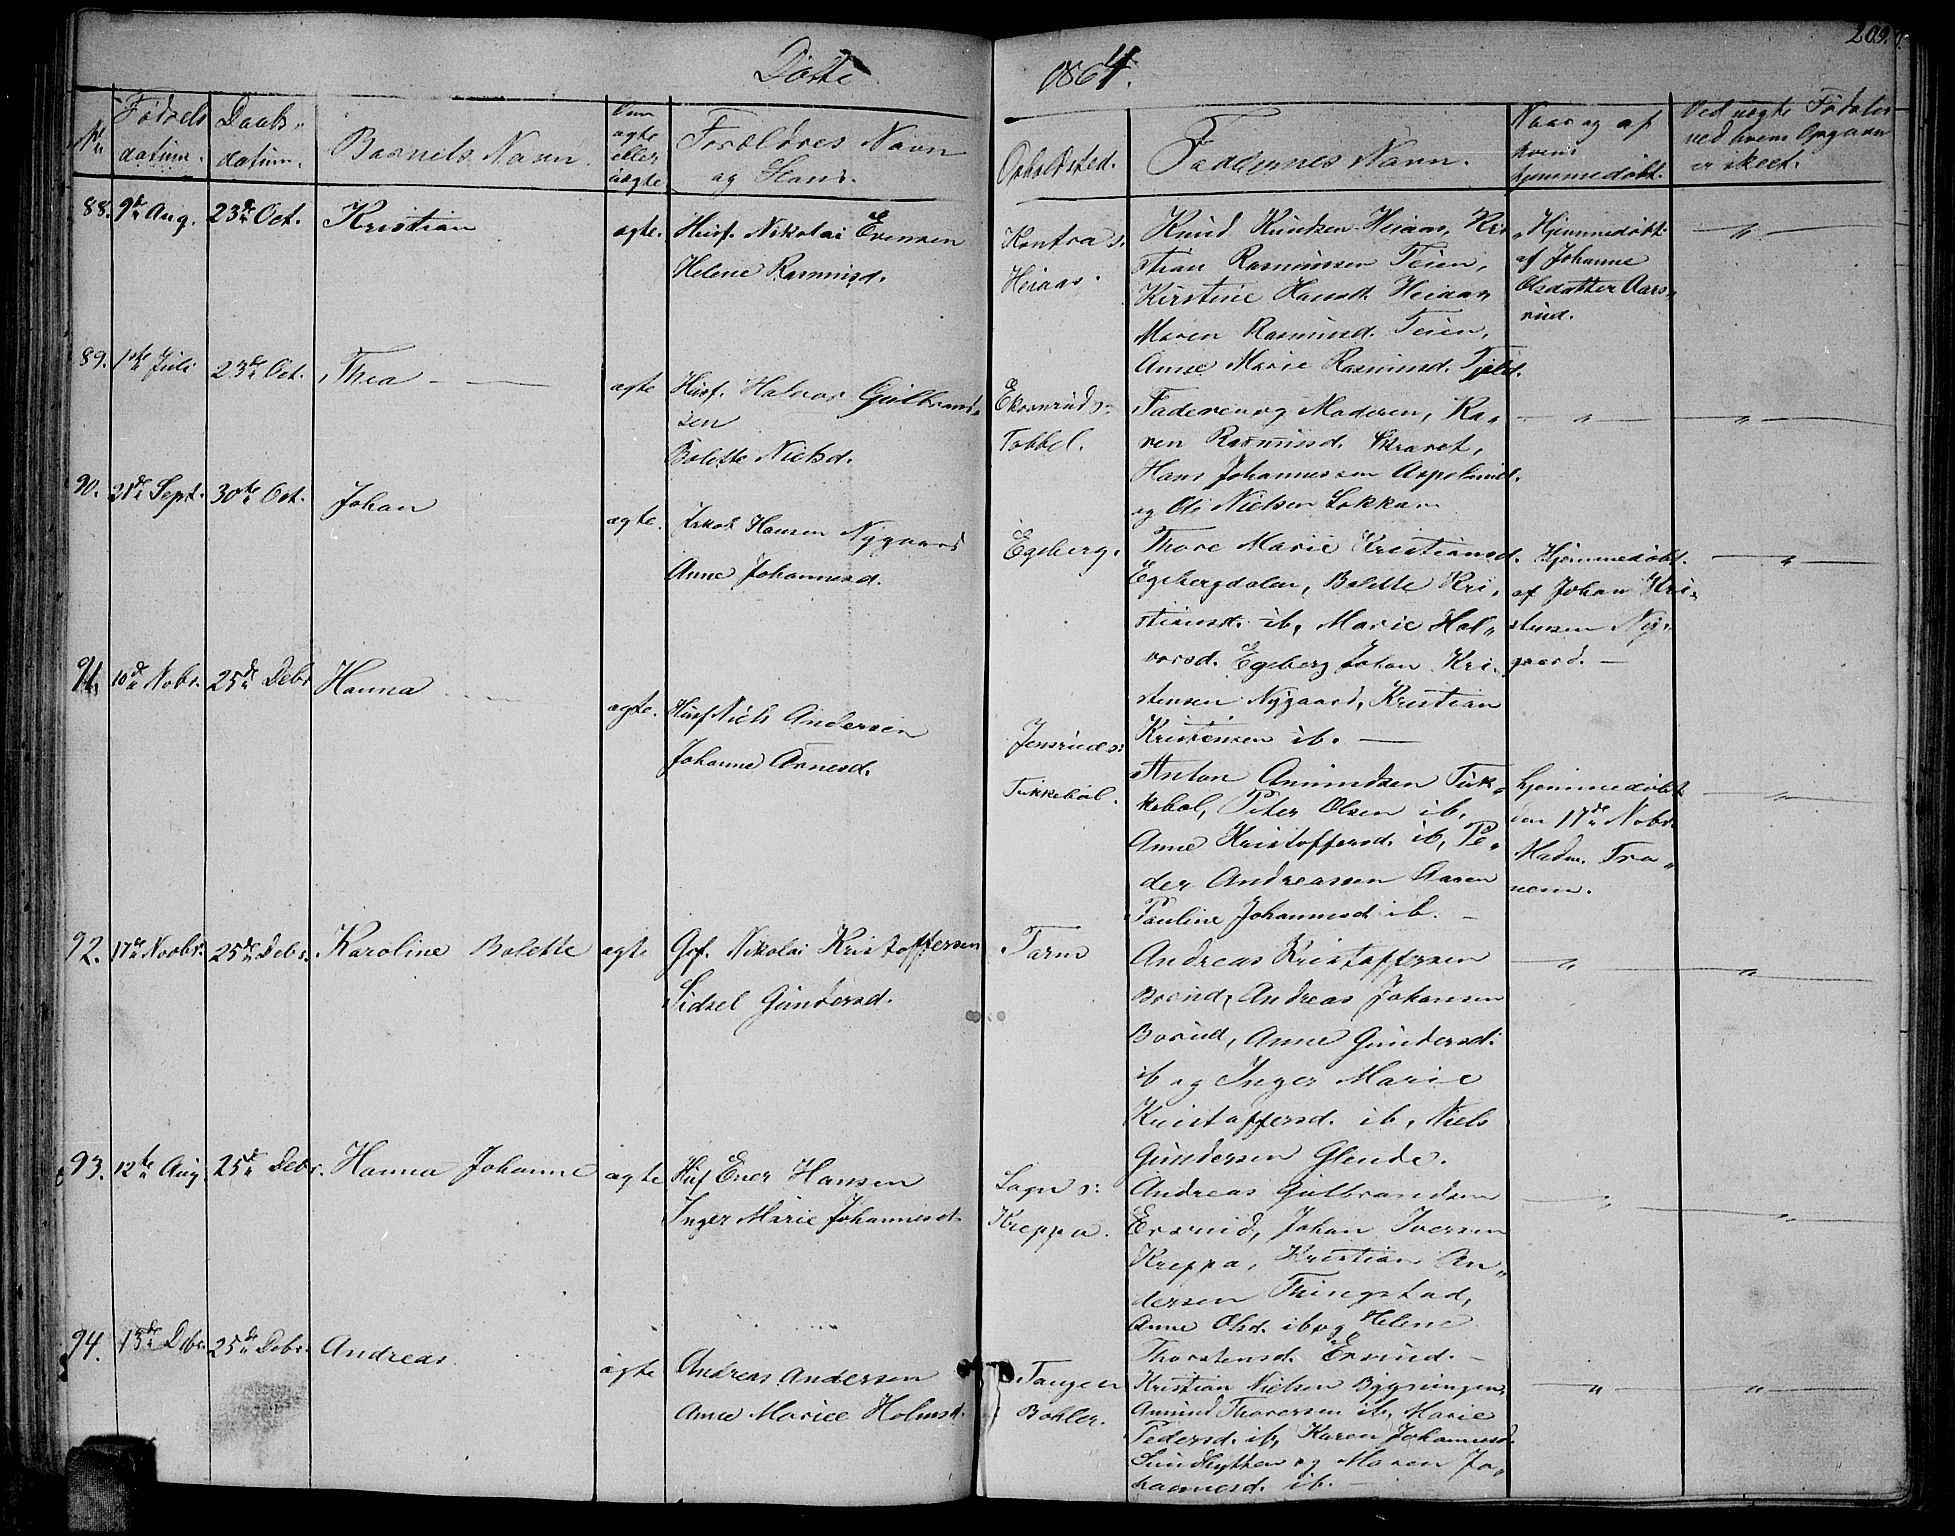 Døbte
1864.
209.
No
Fødsels
datum.
Daabs-
datum.
Barnets Navn.
Om
ægte
eller
uægte
Forældres Navn
og Stand.
Opholdssted.
Faddernes Navn.
Naar og af
hvem
hjemmedøbt.
Ved uægte Fødsler
ved hvem Opgaven
er skeet.
88. 9de Aug. 23de Oct. Kristian
ægte.
Husf. Nikolai Evensen
Helene Rasmusd.
Heiaas.
Knud Knudsen Heiaas, Kri
stian Rasmussen Teien,
Kirstine Hansd. Heiaas,
Maren Rasmusd. Teien,
Anne Marie Rasmusd. Fjeld.
Hjemmedøbt
af Johanne
Olsdatter Aars-
rud.
"
89. 1ste Juli 23de Oct. Thea
ægte
Husf. Halvor Gulbrand-
sen
Bolette Nielsd.
Ekornrud s:
Tobbel.
Faderen og Moderen, Ka-
ren Rasmusd. Skraret,
Hans Johannessen Aspelund.
og Ole Nielsen Løkka
"
"
90. 21de Sept. 30te Oct. Johan
ægte.
Jakob Hansen Nygaard
Anne Johannesd.
Egeberg.
Thore Marie Kristiansd.
Egebergdalen, Bolette Kri-
stiansd. ib, Marie Hal-
vorsd. Egeberg Johan Kri-
stensen Nygaard, Kristian
Kristensen ib.
Hjemmedøbt.
af Johan Kri-
stensen Ny-
gaard.
"
91. 10de Nobr. 25de Debr Hanna
ægte.
Husf Niels Andersen
Johanne Arnesd.
Jensrud s:
Tukkebøl.
Anton Amundsen Tuk-
kebøl, Peter Olsen ib,
Anne Kristoffersd. ib, Pe-
der Andreassen Aasen
Pauline Johannesd ib.
hjemmedøbt
den 17de Nobr.
Madm. Tra-
nem.
"
92. 17de Novbr. 25de Debr. Karoline Bolette
ægte
Grf. Nikolai Kristoffersen
Sidsel Gundersd.
Tarm
Andreas Kristoffersen
Borud, Andreas Johansen
Borud, Anne Gundersd.
ib og Inger Marie
Kristoffersd. ib, Niels
Gundersen Glende.
"
"
93. 12te Aug. 25de Debr. Hanna Johanne
ægte
Huf Ener Hansen
Inger Marie Johannesd.
Sogn s:
Kreppa.
Andreas Gulbrandsen
Ersrud, Johan Iversen
Kreppa, Kristian An-
dersen Thingstad,
Anne Olsd. ib og Helene
Thorstensd. Ersrud.
"
"
94. 13de Dbr. 25de Debr. Andreas
ægte
Andreas Andersen
Anne Marie Holmsd.
Tangen
Bøhler.
Kristian Nielsen Bygningen,
Amund Thoresen ib, Marie
Pedersd. ib, Karen Johannesd.
Sundbytten og Maren Jo-
hannesd. ib.
"
"